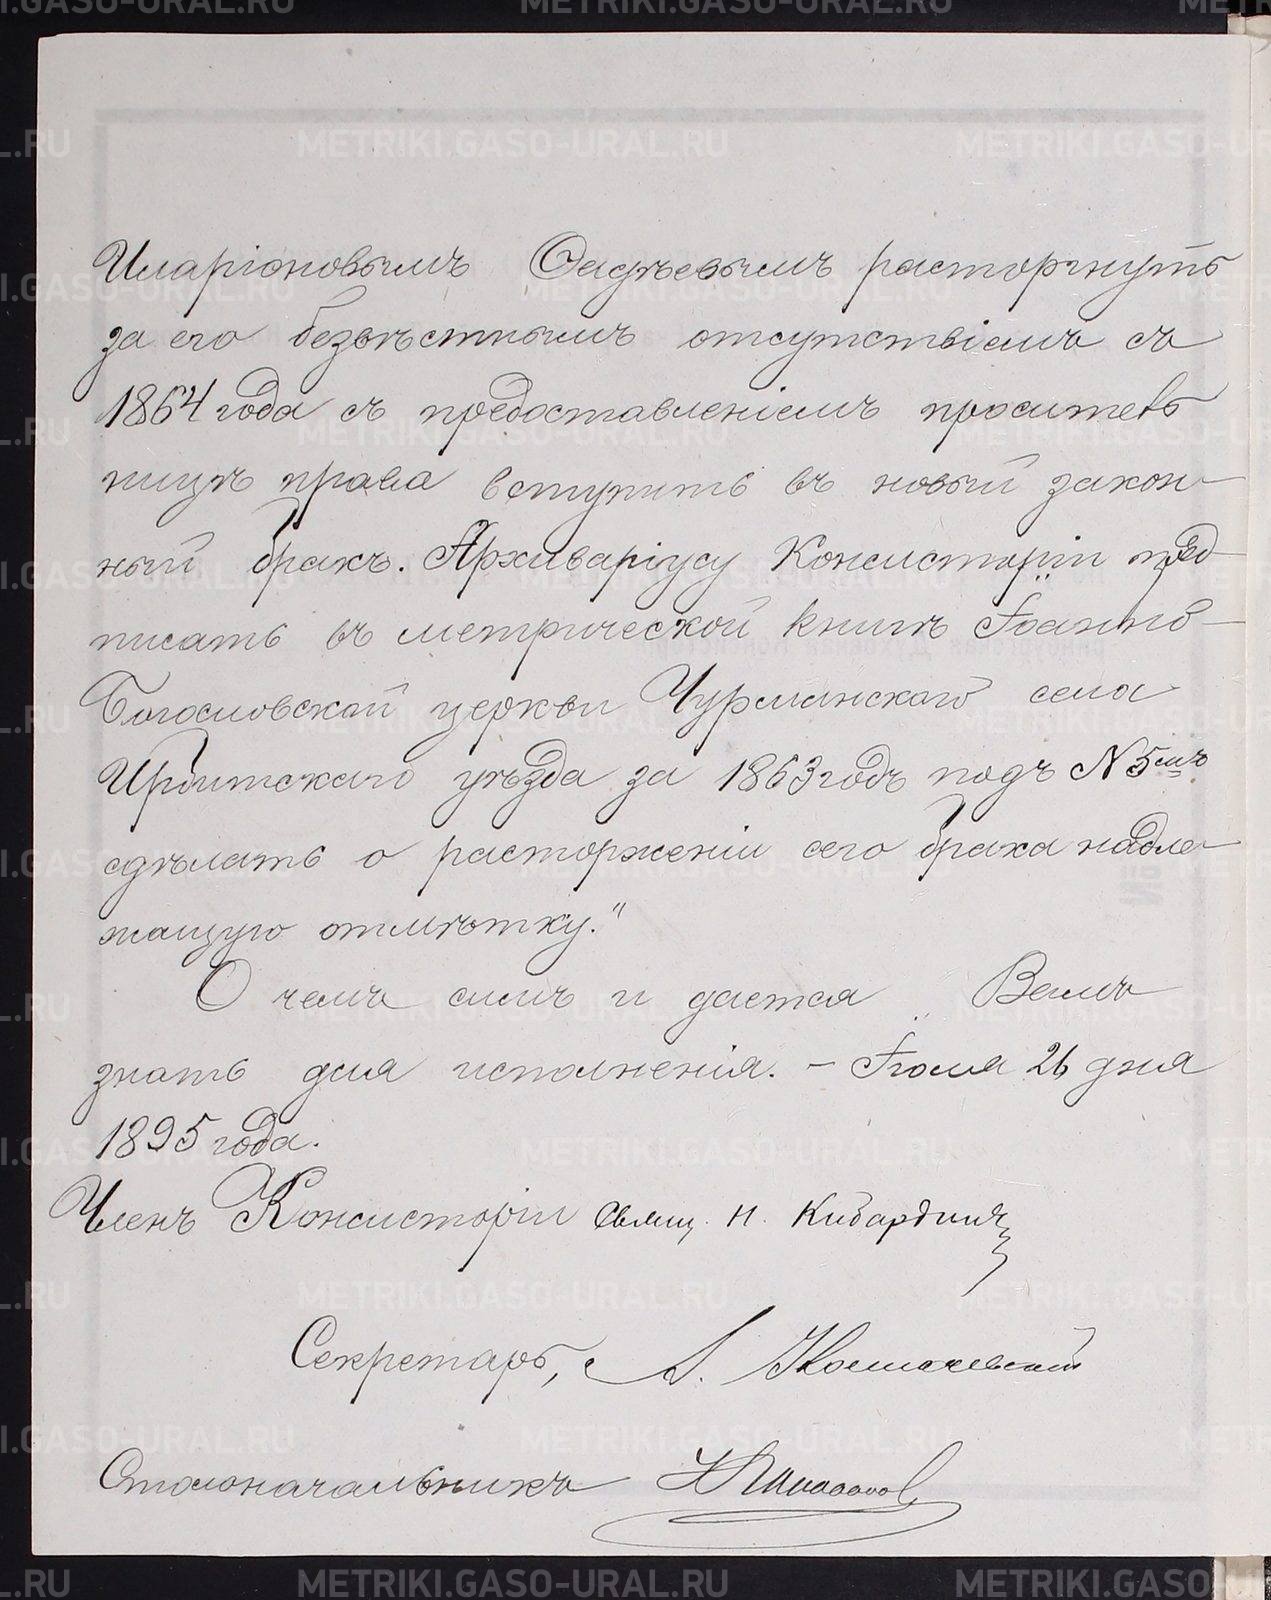 Иларіоновымъ Ѳадѣевымъ расторгнуть
за его безвѣстнымъ отсутствіемъ съ
1864 года съ предоставленіемъ проситель
ницѣ права вступить въ новый закон-
ный бракъ. Архиваріусу Консисторіи пред-
писать въ метрической книгѣ Іоанно-
Богословской церкви Чурманскаго села
Ирбитскаго уѣзда за 1863 годъ подъ № 5мъ
сдѣлать о расторженіи сего брака надле-
жащую отмѣтку."
О чемъ симъ и дается Вамъ
знать для исполненія. – Іюля 26 дня
1895 года.
Членъ Консисторіи Свящ. Н. Кибардинъ
Секретарь, А.
Столоначальникъ
METRIKI.GASO-URAL.RU